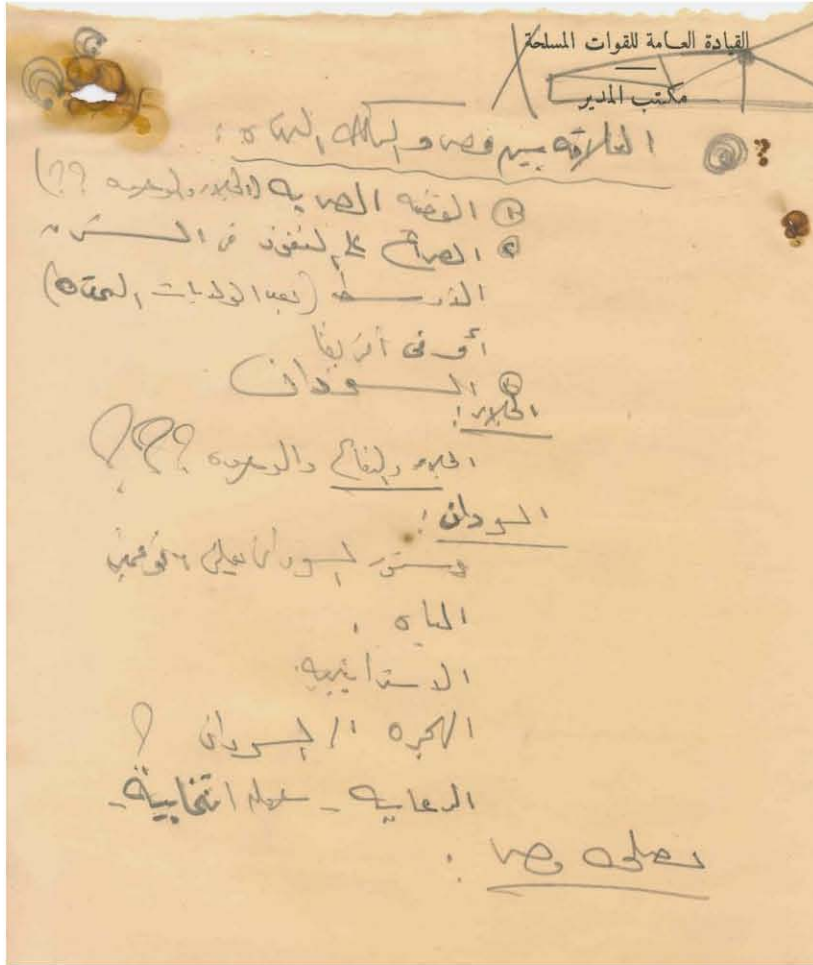 القيادة العامة للقوات المسلحة
مكتب المدير
العلاقة بين مصر والمملكة المتحدة :
① القضية المصرية (الجلاء والوحدة ??)
② الصراع على النفوذ في الشرق
الأوسط (بعد الولايات المتحدة)
أو في أفريقا
③ السودان
الجلاء :
الجلاء والدفاع والوحدة ???
السودان :
دستور السودان يعلن
المياه .
الاستراتيجية
الهجرة الى السودان ؟
الدعاية - انتخابية -
مصر :